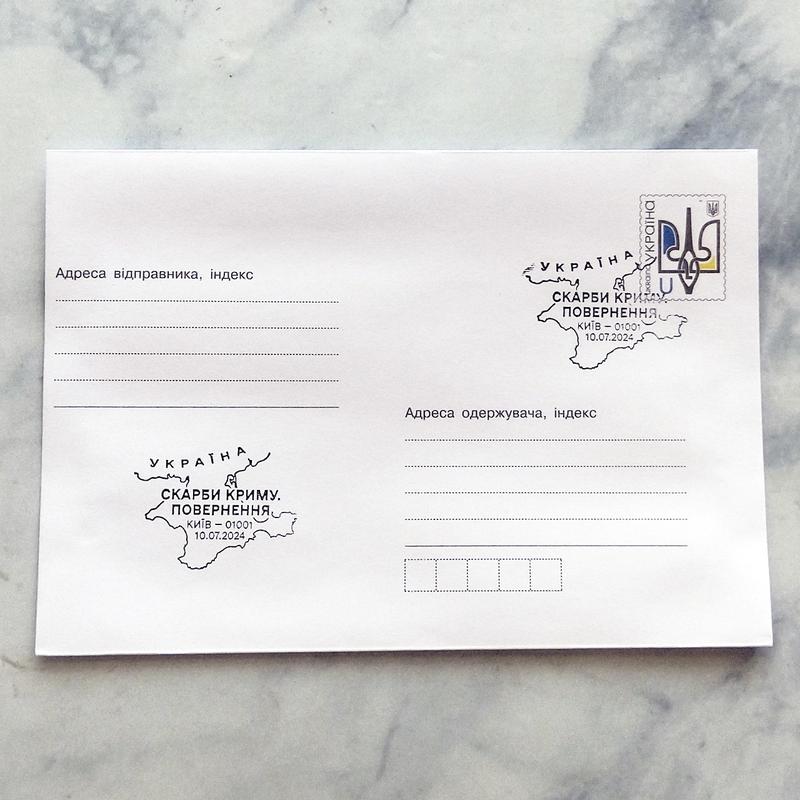 Адреса відправника, індекс
Україна
Ukraina
U
УКРАЇНА
СКАРБИ КРИМУ.
ПОВЕРНЕННЯ
КИЇВ – 01001
10.07.2024
Адреса одержувача, індекс
УКРАЇНА
СКАРБИ КРИМУ.
ПОВЕРНЕННЯ
КИЇВ – 01001
10.07.2024